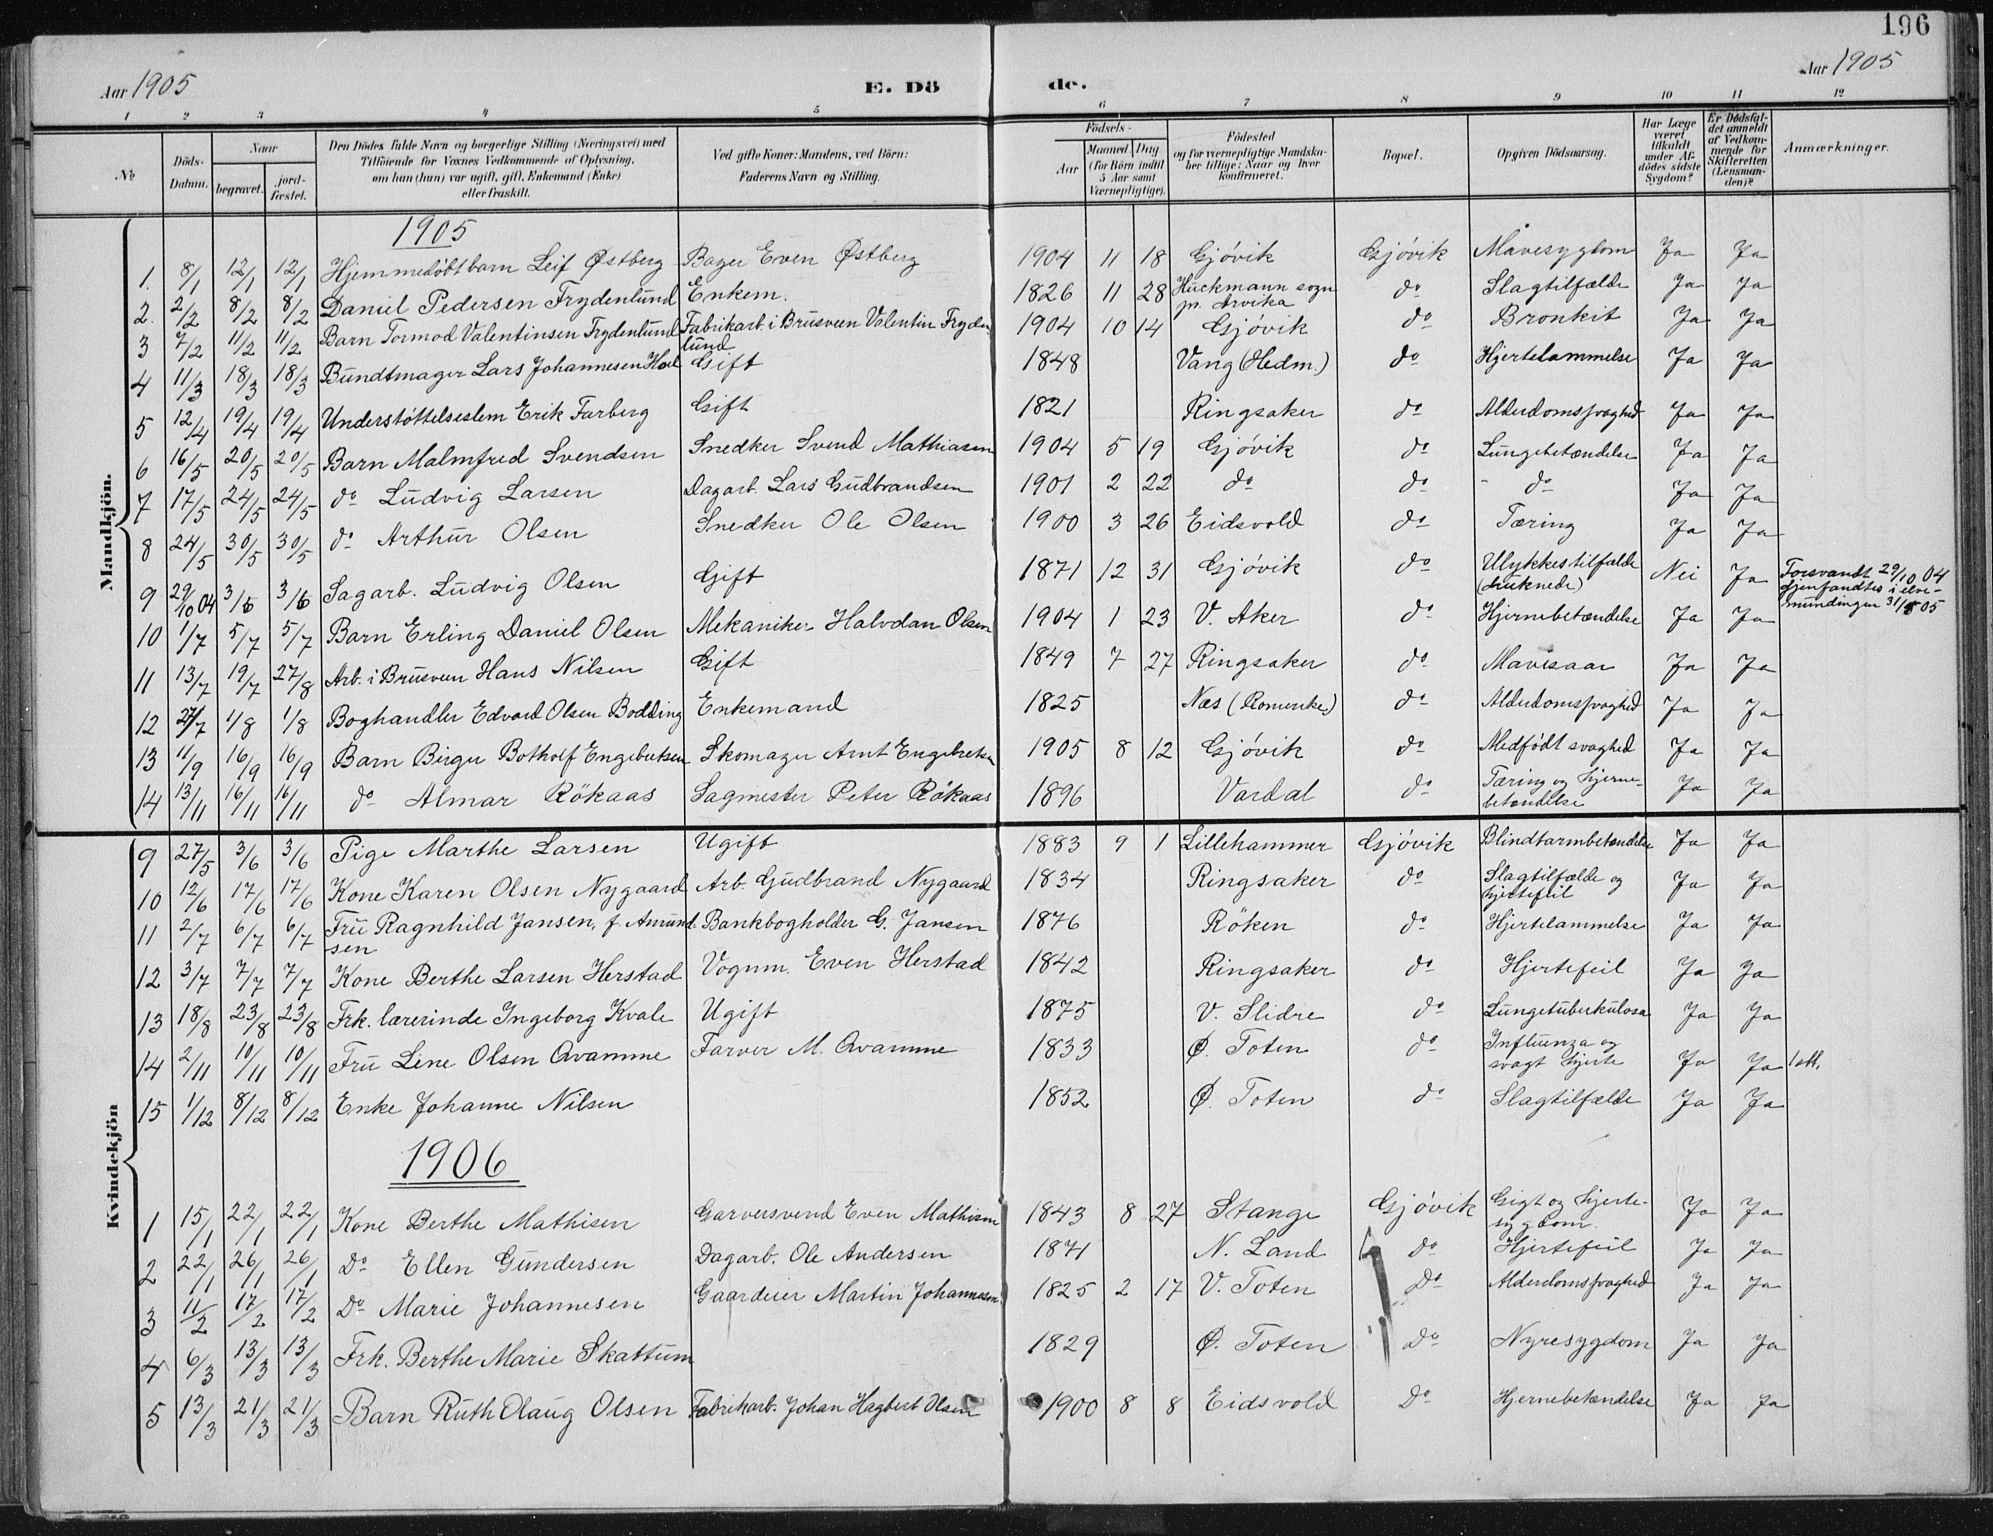 196
Aar 1905
E. Dö
de.
Aar 1905
1 2 3 4 5 6 7 8 9 10 11 12
No
Döds-Datum.
Naar
begravet.
jordfæstet.
Den Dödes fulde Navn og borgerlige Stilling (Næringsvei) med
Tilföiende for Voxnes Vedkommende af Oplysning,
om han (hun) var ugift, gift, Enkemand (Enke)
eller fraskilt.
Ved gifte Koner: Mandens, ved Börn:
Faderens Navn og Stilling.
Födsels-
Aar
Maaned. Dag
(for Börn indtil
5 Aar samt
Værnepligtige).
Födested
og for værnepligtige Mandskaber
tillige: Naar og hvor
konfirmeret.
Bopæl.
Opgiven Dödsaarsag.
Har Læge
været
tilkaldt
under Afdödes
sidste
Sygdom?
Er Dödsfaldet
anmeldt
af Vedkommende
for
Skifteretten
(Lensmanden)?
Anmærkninger.
Mandkjön.
1905
1. 8/1 12/1 12/1 Hjemmedøbt barn Leif Østberg Bager Even Østberg 1904 11 18 Gjøvik Gjøvik Mavesygdom Ja Ja
2. 2/2 8/2 8/2 Daniel Pedersen Frydenlund Enkem. 1826 11 28 Huckmann sogn pr. Arvika do Slagtilfælde Ja Ja
3 7/2 11/2 11/2 Barn Tormod Valentinsen Frydenlund Fabrikarb. i Brusveen Valentin Frydenlund 1904 10 14 Gjøvik do Bronkit Ja Ja
4 11/3 18/3 18/3 Bundtmager Lars Johannesen Hoel Gift 1848 Vang (Hedm.) do Hjertelammelse Ja Ja
5 12/4 19/4 19/4 Understøttelseslem Erik Farberg Gift 1821 Ringsaker do Alderdomssvaghed Ja Ja
6 16/5 20/5 20/5 Barn Malmfred Svendsen Snedker Svend Mathiasen 1904 5 19 Gjøvik do Lungebetændelse Ja Ja
7 17/5 24/5 24/5 do Ludvig Larsen Dagarb. Lars Gudbrandsen 1901 2 22 do do - do Ja Ja
8 24/5 30/5 30/5 do Arthur Olsen Snedker Ole Olsen 1900 3 26 Eidsvold do Tæring Ja Ja
9 29/10 04 3/6 3/6 Sagarb. Ludvig Olsen Gift 1871 12 31 Gjøvik do Ulykkestilfælde (druknede) Nei Ja Forsvandt 29/10 04 Gjenfandtes i elvemundingen 31/5 05
10 1/7 5/7 5/7 Barn Erling Daniel Olsen Mekaniker Halvdan Olsen 1904 1 23 V. Aker do Hjernebetændelse Ja Ja
11 13/7 19/7 27/8 Arb. i Brusveen Hans Nilsen Gift 1849 7 27 Ringsaker do Mavesaar Ja Ja
12 27/7 1/8 1/8 Boghandler Edvard Olsen Bodding Enkemand 1825 Næs (Romerike) do Alderdomssvaghed Ja Ja
13 11/9 16/9 16/9 Barn Birger Botholf Engebretsen Skomager Arnt Engebretsen 1905 8 12 Gjøvik do Medfødt svaghed Ja Ja
14 13/11 16/11 16/11 do Almar Rökaas Sagmester Peter Rökaas 1896 Vardal do Tæring og hjernebetændelse Ja Ja
Kvindekjön
9 27/5 3/6 3/6 Pige Marthe Larsen Ugift 1883 9 1 Lillehammer Gjøvik Blindtarmbetændelse Ja Ja
10 12/6 17/6 17/6 Kone Karen Olsen Nygaard Arb. Gudbrand Nygaard 1834 Ringsaker do Slagtilfælde og hjertefeil Ja Ja
11 2/7 6/7 6/7 Fru Ragnhild Jansen, f. Amundsen Bankbogholder G. Jansen 1876 Röken do Hjertelammelse Ja Ja
12 3/7 7/7 7/7 Kone Berthe Larsen Herstad Vognm. Even Herstad 1842 Ringsaker do Hjertefeil Ja Ja
13 18/8 23/8 23/8 Frk. lærerinde Ingeborg Kvale Ugift 1875 V. Slidre do Lungetuberkulosa Ja Ja
14 2/11 10/11 10/11 Fru Lene Olsen Qvamme Farver M. Qvamme 1833 Ø. Toten do Influenza og svagt hjerte Ja Ja 1 att.
15 1/12 8/12 8/12 Enke Johanne Nilsen 1852 Ø. Toten do Slagtilfælde Ja Ja
1906
1 15/1 22/1 22/1 Kone Berthe Mathisen Garversvend Even Mathisen 1843 8 27 Stange Gjøvik Gigt og hjertesygdom. Ja Ja
2 22/1 26/1 26/1 Do Ellen Gundersen Dagarb. Ole Andersen 1871 N. Land do Hjertefeil Ja Ja
3 11/2 17/2 17/2 Do Marie Johannesen Gaardeier Martin Johannesen 1825 2 17 V. Toten Do Alderdomssvaghed Ja Ja
4 6/3 13/3 13/3 Frk. Berthe Marie Skattum 1829 Ø. Toten Do Nyresygdom Ja Ja
5 13/3 21/3 21/3 Barn Ruth Olaug Olsen Fabrikarb. Johan Hagbert Olsen 1900 8 8 Eidsvold Do Hjernebetændelse Ja Ja